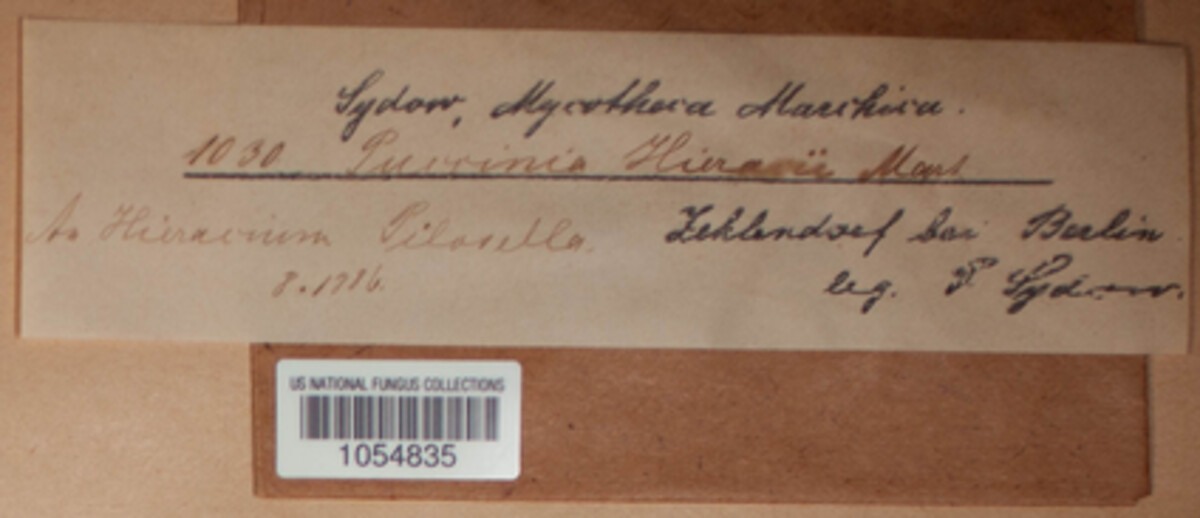 Sydow, Mycotheca Marchica.
1030 Puccinia Hieracii Mart
An Hieracium Pilosella.
Zehlendorf bei Berlin
8.1886.
leg. P Sydow.
US NATIONAL FUNGUS COLLECTIONS
1054835